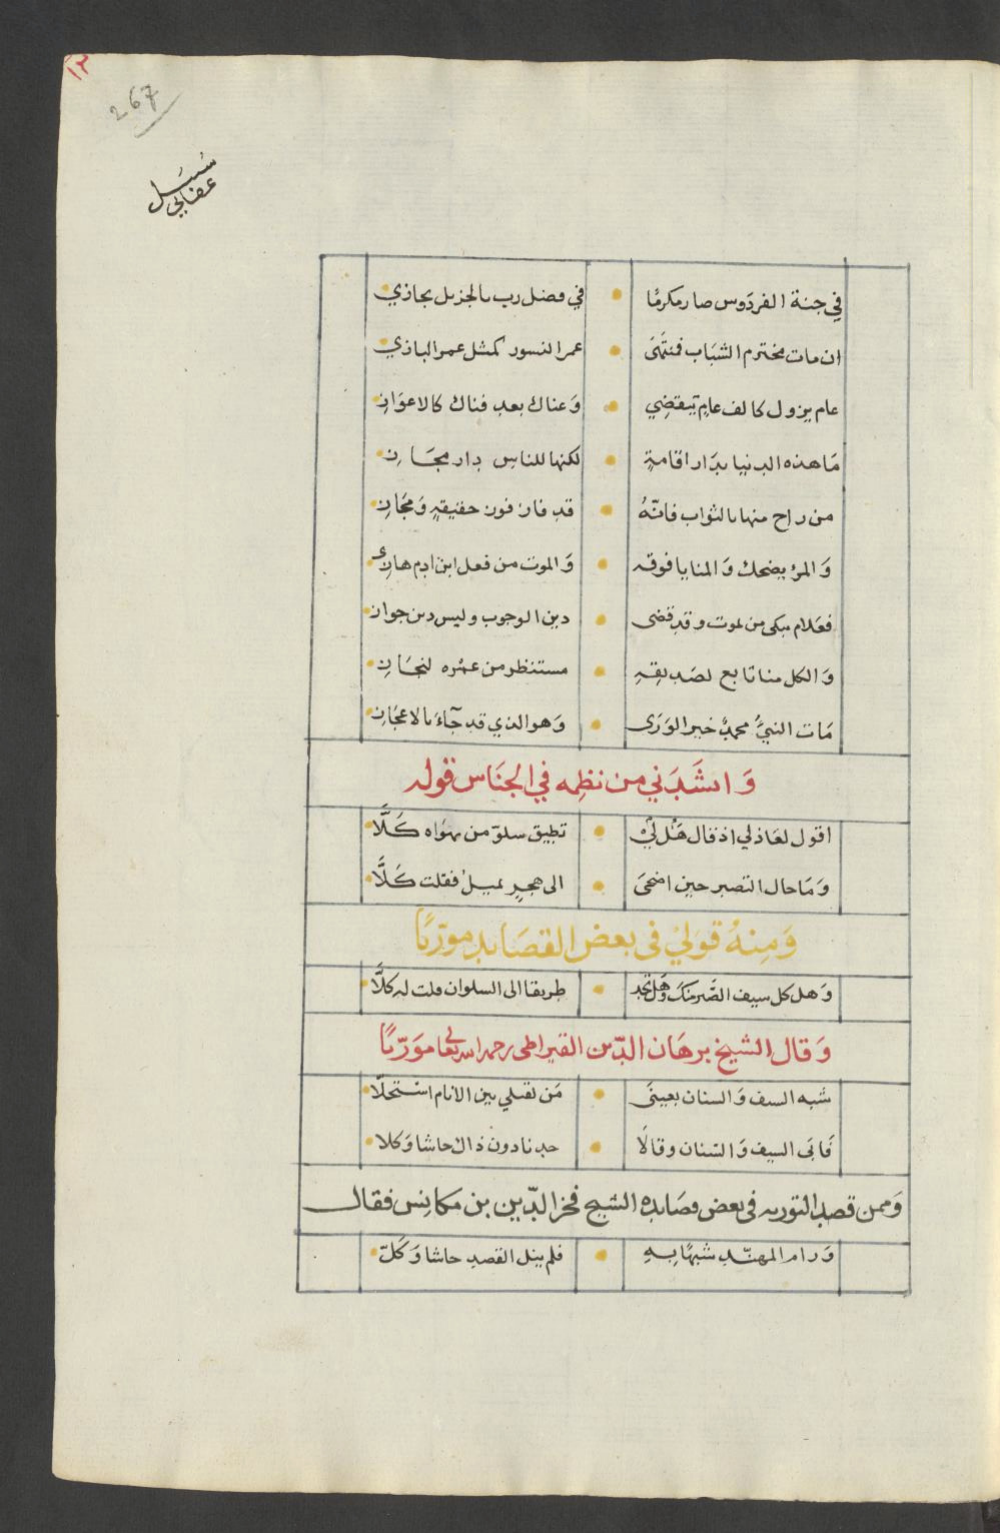 ١٢
267
سبيل
عفابي
في جنة الفردَوس صار مكرمًا • في فضل رب بالجزيل يجازي
ان مات مخترم الشبَاب فمنتهَى • عمر النسور كمثل عمر البازي
عام يزول كالف عامٍ تنقضِي • وَعناك بعد فناك كالاعوَازِ
مَا هذه الدنيا بدَار اقامةٍ • لكنها للناسِ دار مجَازِ
من راح منها بالثواب فانّهُ • قد فاز فوز حقيقةٍ وَمجَازِ
وَالمرؤ يضحك وَالمنايا فوقه • وَالموت من فعل ابن ادم هازئ
فعَلام نبكى من لموت وقد قضى • دين الوجوب وليس دين جواز
وَالكل منا تابع لصَديقِهِ • مستنظر من عمُره لنجَازِ
مَات النبيُّ محمدٌ خير الوَرَى • وَهو الذي قد جآءَ بالاعجَازِ
وَانشَدَني من نظِمه في الجنَاس قوله
اقول لعَاذلي اذ قال هَلْ لَيْ • تطيق سلوّ من تهوَاه كَلَّا
وَمَا حال التصبر حين اضحَى • الى هجرٍ يميلُ فقلت كَلَّا
وَمِنهُ قوَليْ فى بعض القصَايد مورّيًا
وَهل كل سيف الصَبر منكَ وَهَل تجد • طريقا الى السلوان قلت له كلَّا
وَقال الشيخ برهَان الدّين القيراطى رحمه الله تعالى موَرّيًا
شبه السيف وَالسنان بعينَى • مَن لقتلي بين الانام استَحلّا
فَابَى السيف وَالسّنان وقالَا • حدنا دون ذاك حاشا وَكلا
وَممن قصد التوريه فى بعض قصَايده الشيخ فخر الدّين بن مكانِس فقال
وَرام المهنّد شبهًا بِهِ • فلم ينل القصد حاشا وَكَلّ